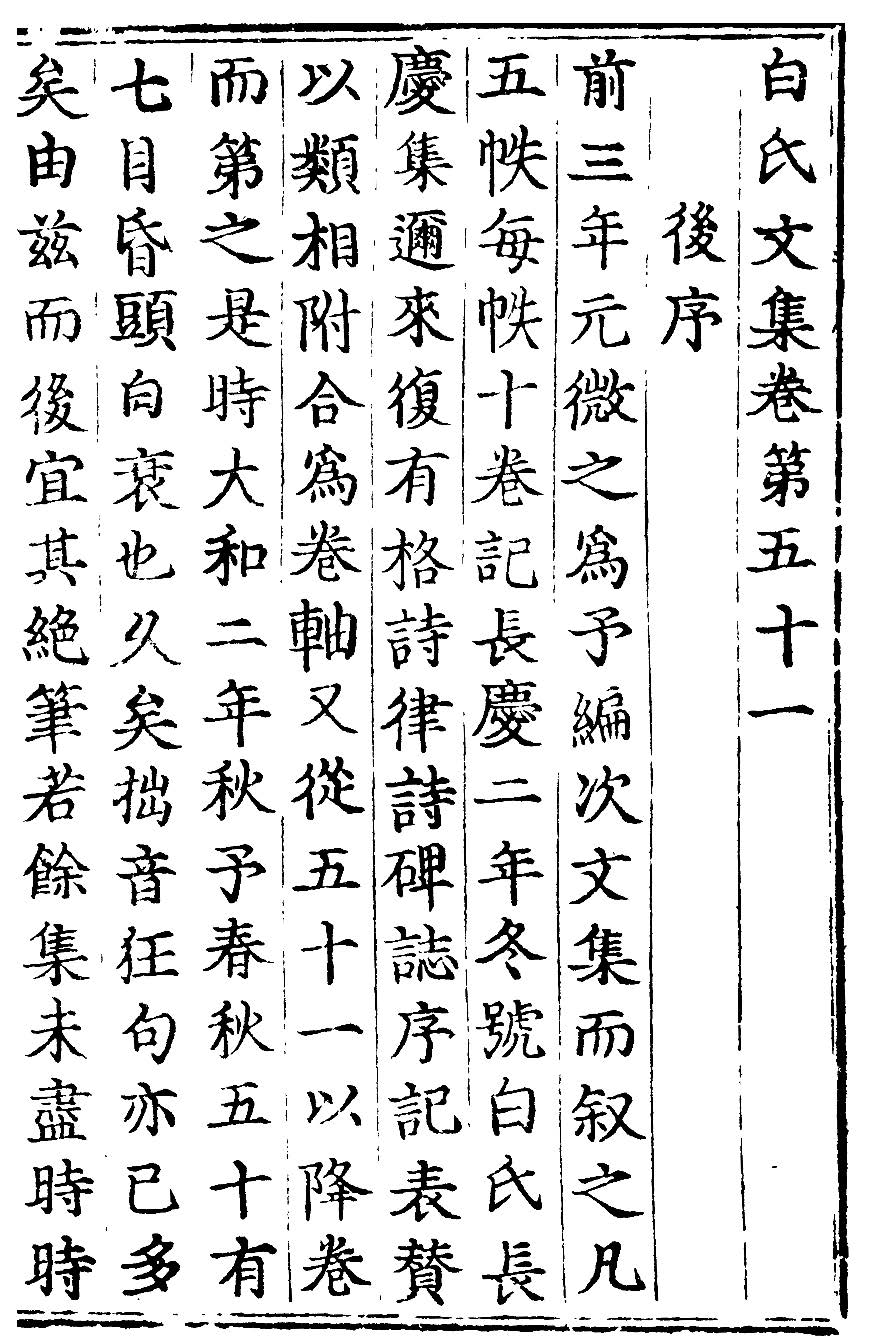 白氏文集卷第五十一
後序
前三年元微之爲予編次文集而叙之凡
五帙每帙十卷記長慶二年冬號白氏長
慶集邇來復有格詩律詩碑誌序記表賛
以類相附合爲卷軸又從五十一以降卷
而第之是時大和二年秋予春秋五十有
七目昏頭白衰也久矣拙音狂句亦已多
矣由兹而後宜其絶筆若餘集未盡時時